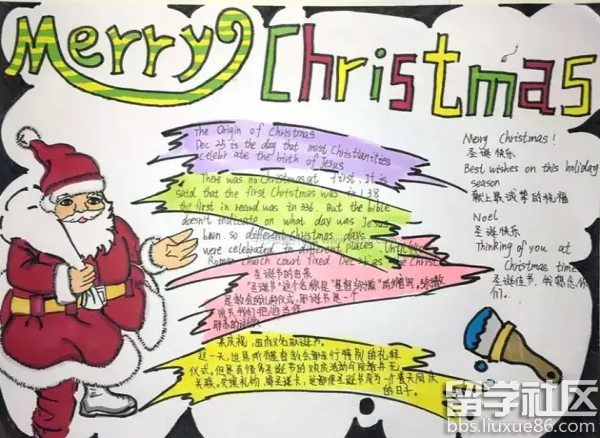 Merry Christmas
The Origin of Christmas
Dec 25 is the day that most Christianities
celebr ate the birth of Jesus
There was no Christmas at first. It is
said that the first Christmas was in 138
the first in record was in 336. But the bible
doesn't indicate on what day was Jesus
born so different Christmas days
were celebrated in different plates. Until
Roman church court fixed Dec 25 as the Christ
圣诞节的由来
"圣诞节"这个名称是"基督弥撒"的缩写。弥撒
是教会的礼拜仪式。耶诞节是一个
节。我们把它当作
耶稣的
来庆祝，因而又名耶诞节。
这一天，世界所有基督教会都举行特别的礼拜
仪式。但是有很多圣诞节的欢庆活动与宗教并无
关联。交换礼物，寄圣诞卡，这都使圣诞节成为一个普天同庆
的日子。
Merry Christmas!
圣诞快乐
Best wishes on this holiday
season
献上最诚挚的祝福
Noel
圣诞快乐
Thinking of you at
Christmas time
圣诞佳节，我想念你
们。
留学社区
bbs.liuxue86.com